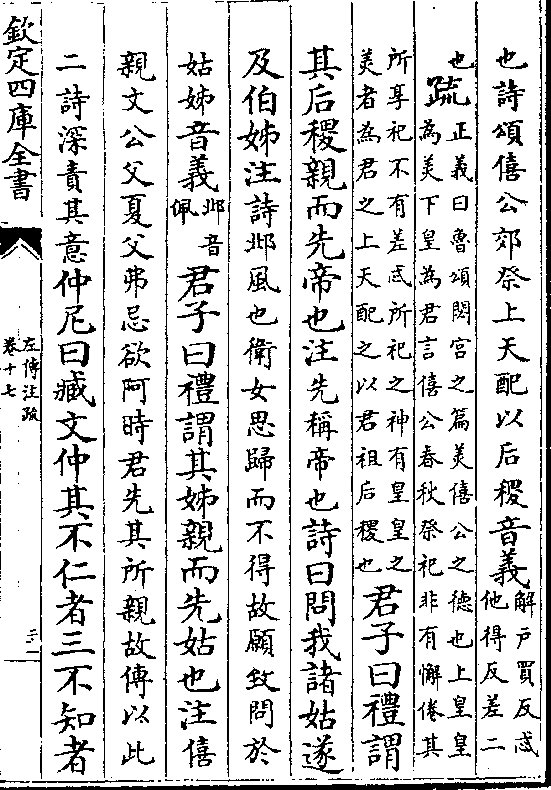 也詩頌僖公郊祭上天配以后稷音義解戸買反忒
他得反差二
也疏正義曰魯頌閟宫之篇美僖公之德也上皇皇
為美下皇為君言僖公春秋祭祀非有懈倦其
所享祀不有差忒所祀之神有皇皇之
美者為君之上天配之以君祖后稷也君子曰禮謂
其后稷親而先帝也注先稱帝也詩曰問我諸姑遂
及伯姊注詩邶風也衛女思歸而不得故願致問於
姑姊音義邶音
佩君子曰禮謂其姊親而先姑也注僖
親文公父夏父弗忌欲阿時君先其所親故傳以此
二詩深責其意仲尼曰臧文仲其不仁者三不知者
欽定四庫全書
左傳注疏
卷十七